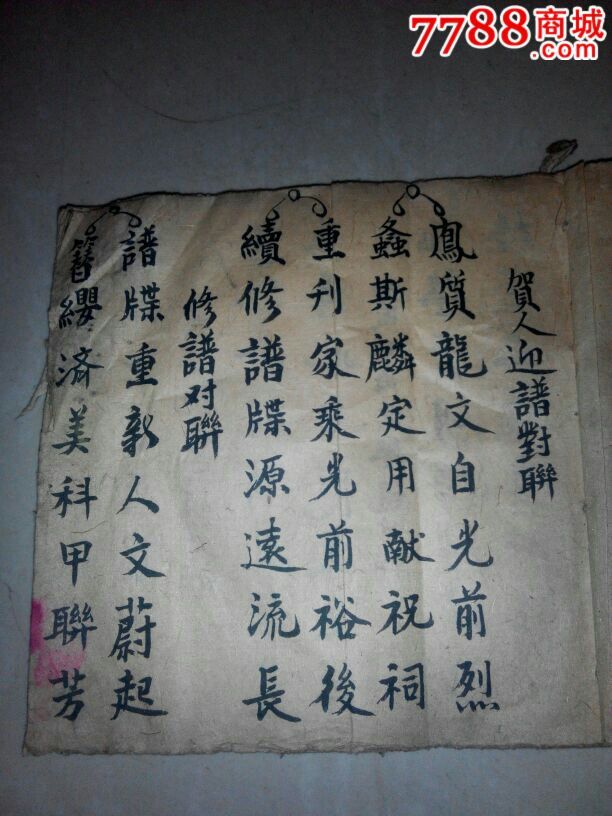 7788商城
.com
賀人迎譜對聯
鳳質龍文自光前烈
螽斯麟定用献祝祠
重刊家乘光前裕後
續修譜牒源遠流長
修譜対聯
譜牒重新人文蔚起
簪纓済美科甲聯芳